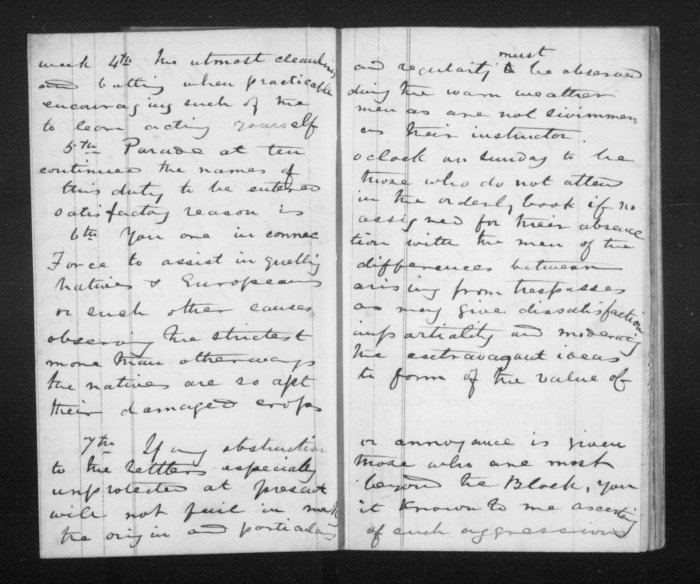 week 4th The utmost cleanliness and regularity must be observed
and batting when practicable during the warm weather
encouraging such of the men as are not swimmers
to learn acting yourself as their instructor
5th Parade at ten oclock on sunday to be
continued the names of those who do not atten
this duty to be entered in the orderly book if no
satisfactory reason is assigned for their absence
6th You are in connec tion with the men of the
Force to assist in quelling differences between
Natives & Europeans arising from trespasses
or such other causes as may give dissatisfaction
observing the strictest impartiality and moderating
more than otherways the extravagant ideas
the natives are so apt to form of the value of
their damaged crops
7th If any obstruction or annoyance is given
to the settlers especially those who are most
unprotected at present beyond the Block, you
will not fail in making it known to me ascerting
the origin and particulars of such aggressions